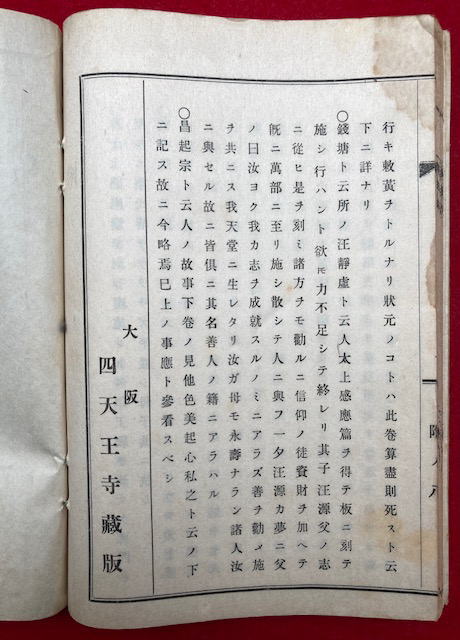 行キ敕黄ヲトルナリ狀元ノコトハ此卷算盡則死スト云
下ニ詳ナリ
○錢塘ト云所ノ汪靜虛ト云人太上感應篇ヲ得テ板ニ刻テ
施シ行ハント欲𪜈力不足シテ終レリ其子汪源父ノ志
ニ從ヒ是ヲ刻ミ諸方ヲモ勸ルニ信仰ノ徒資財ヲ加ヘテ
旣ニ萬部ニ至リ施シ散シテ人ニ與フ一夕汪源カ夢ニ父
ノ曰汝ヨク我カ志ヲ成就スルノミニアラズ善ヲ勸メ施
ヲ共ニス我天堂ニ生レタリ汝ガ母モ永壽ナラン諸人汝
ニ與セル故ニ皆俱ニ其名善人ノ籍ニアラハル
○昌起宗ト云人ノ故事下卷ノ見他色美起心私之ト云ノ下
ニ記ス故ニ今略焉已上ノ事應ト參看スベシ
大阪
四天王寺藏版